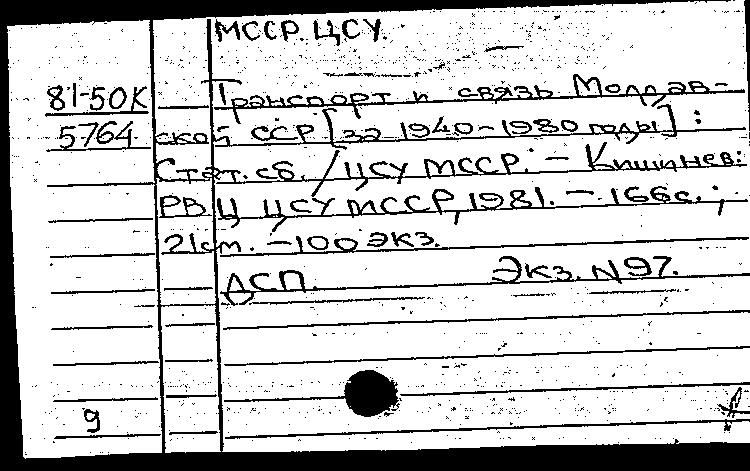 МССР. ЦСУ.
81-50К Транспорт и связь Молдав-
5764 ской ССР [за 1940-1980 годы] :
Стат. сб. / ЦСУ МССР. - Кишинев:
РВЦ ЦСУ МССР, 1981. - 166с. ;
21см. - 100 экз.
ДСП. Экз. N 97.
9